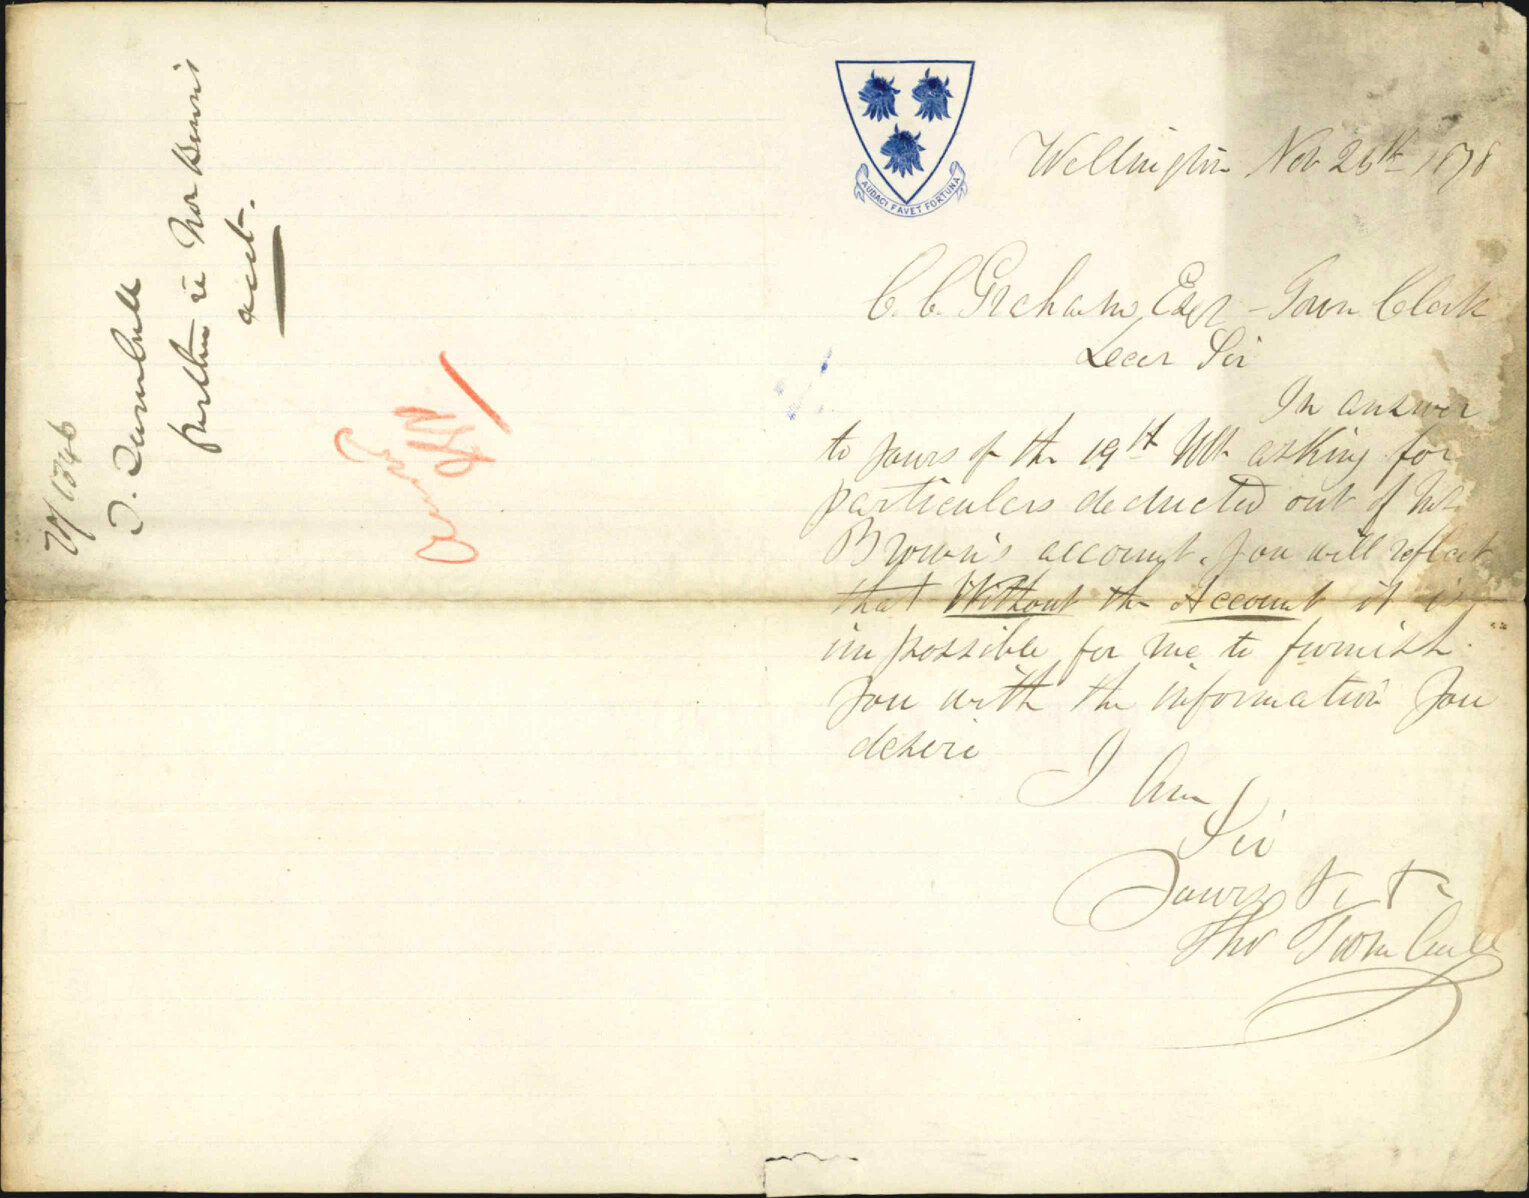 AUDACI FAVET FORTUNA
Wellington Nov 25th 1878
C. C. Graham, Esqr - Town Clerk
Dear Sir
In answer
to yours of the 19th Ult asking for
particulars deducted out of Mr
Brown's account. You will reflect
that Without the Account it is
impossible for me to furnish
you with the information you
desire
I Am
Sir
Yours &c &c
Thos Turnbull
78/1346
T. Turnbull
further re
acct.